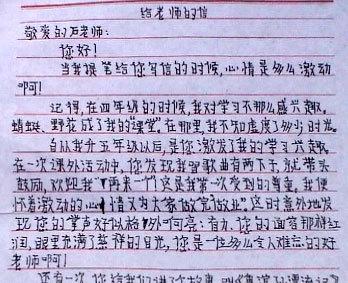 给老师的信
敬爱的石老师：
您好！
当我提笔给您写信的时候，心情是多么激动
啊！
记得，在四年级的时候，我对学习不那么感兴趣。
蜻蜓、野花成了我的"课堂"。在那里，我不知虚度了多少时光。
自从我升五年级以后，是您激发了我的学习兴趣。
在一次课外活动中，您发现我唱歌曲有两下子，就带头
鼓励，欢迎我"再来一个"这是我第一次受到的尊重，我便
怀着激动的心情又为大家做完做业"这时意外地发
现您的掌声好似格外响亮：有力，您的面容那样红
润，眼里充满了慈祥的目光，您是一位多么令人难忘的好
老师啊！
还有一次，您给我们讲了故事